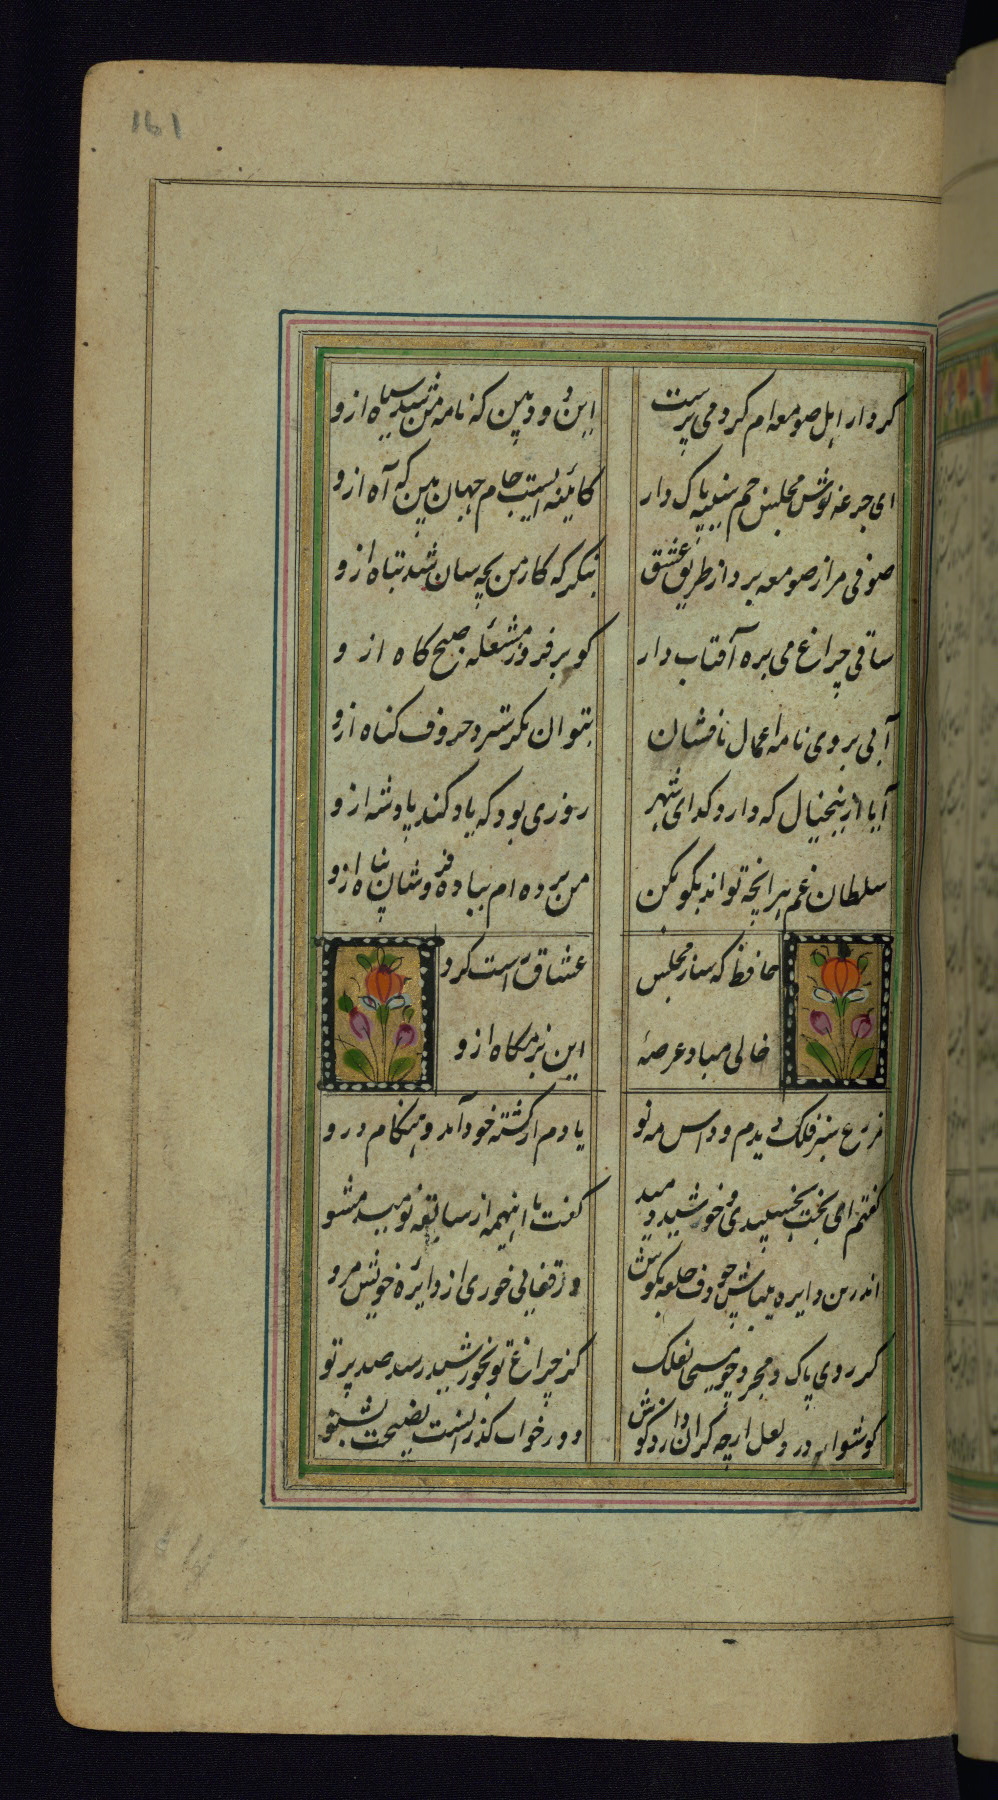 161
کردار اهل صومعه ام کرد می پرست
این دود بین که نامه من شد سیاه ازو
ای جرعه نوش مجلس جم سینه پاک دار
کاینه ایست جام جهان بین که آه ازو
صوفی مرا ز صومعه برد از طریق عشق
بنگر که کار من بچه سان شد تباه ازو
ساقی چراغ می بره آفتاب دار
کو برفروز مشعله صبح کاه ازو
آبی بروی نامه اعمال ما فشان
بتوان مکر سترد حروف کناه ازو
آیا ازین خیال که دارد کدای شهر
روزی بود که یاد کند پادشه ازو
سلطان غم هر انچه تواند بکو بکن
من برده ام بباده فروشان پناه ازو
حافظ که ساز مجلس
عشاق راست کرد
خالی مباد عرصهٔ
این بزمکاه ازو
مزرع سبز فلک دیدم و داس مه نو
یادم از کشته خود آمد و هنکام درو
کفتم ای بخت بخسبیدی و خورشید دمید
کفت با اینهمه از سابقه نومید مشو
اندرین دایره میباش چو دف حلقه بکوش
ور قفایی خوری از دایره خویش مرو
کر روی پاک و مجرد چو مسیحا بفلک
کز چراغ تو بخورشید رسد صد پرتو
کوشوار در و لعل ارچه کران دارد کوش
دور خوبی کذرانست نصیحت بشنو